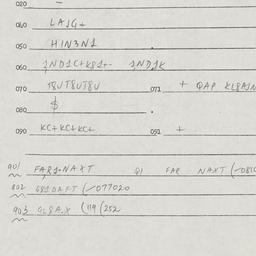 020
040 LAJG+
050 HIN3N1
060 1ND1C+K81+- 1ND1K
070 T8UT8UT8U 071 + QAP KL8A1N
080 $
090 KC+KC+KC+ 091 +
901 FAR1+NAXT 01 FAR NAXT (-081
902 681DAFT (-077020
903 OL8A.X (119 (252